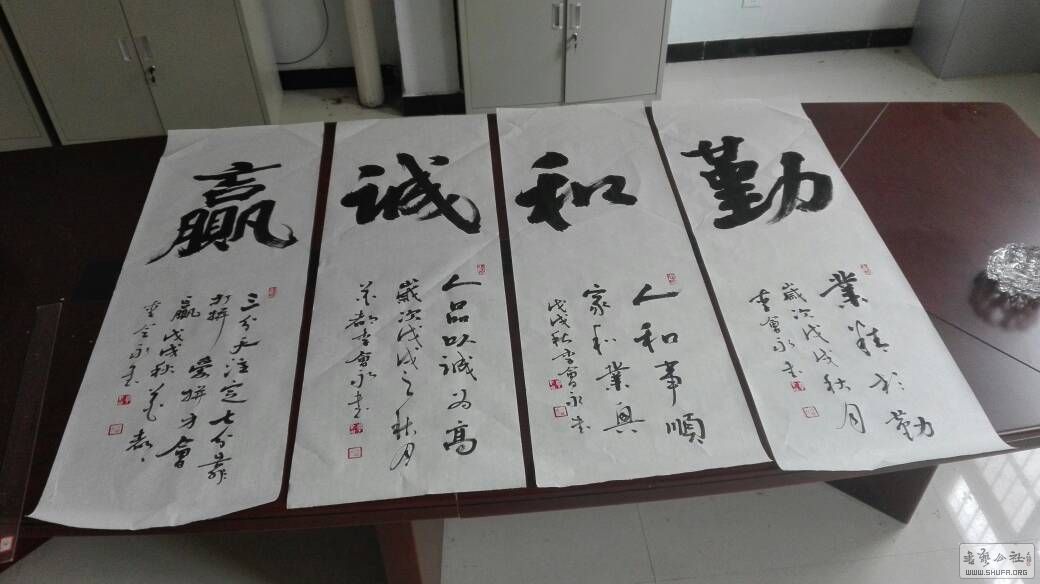 勤
業精於勤
歲次戊戌秋月
會永書
和
人和事順
家和業興
戊戌秋會永書
誠
人品以誠為高
歲次戊戌之秋月
都會永書
贏
三分天注定七分靠
打拼愛拼才會
贏戊戌秋都
会永書
書藝公社
WWW.SHUFA.ORG